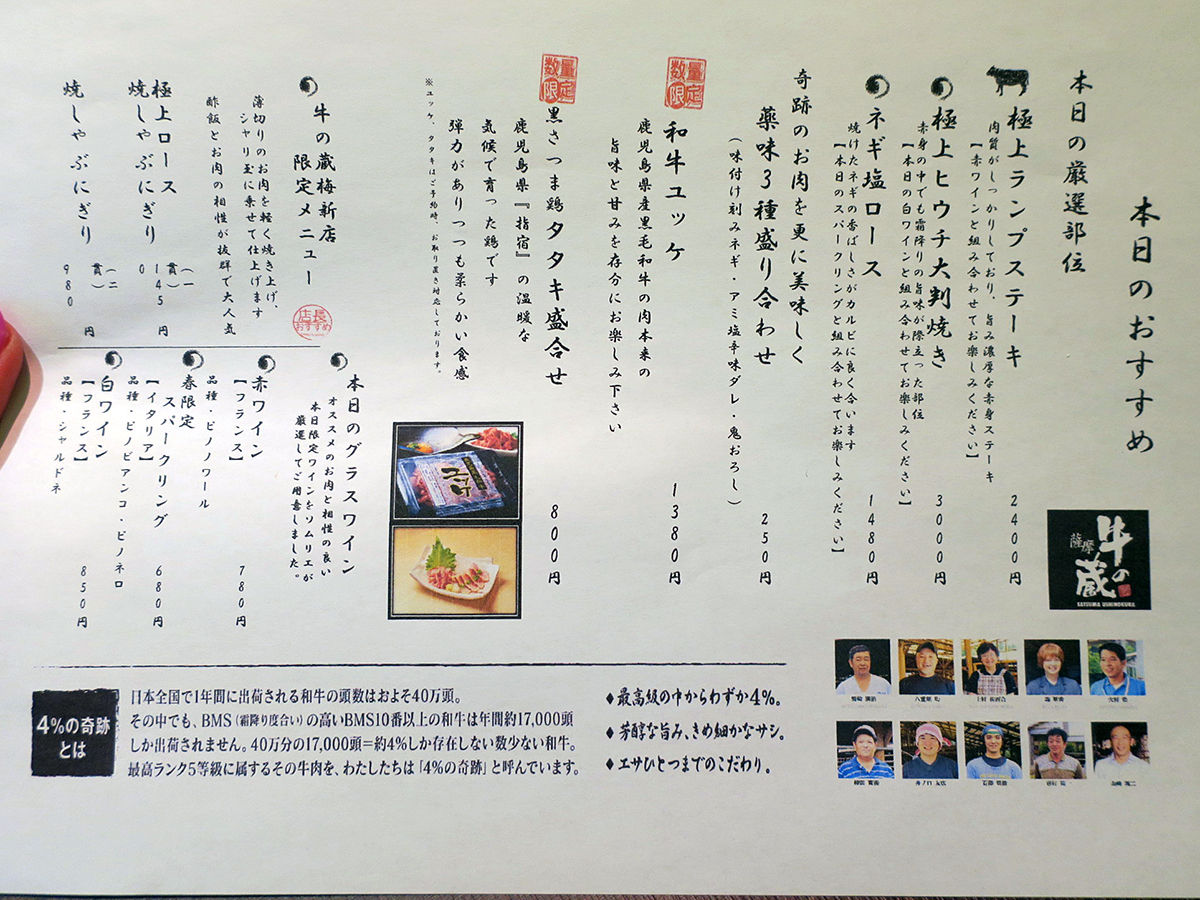 本日のおすすめ
本日の厳選部位
極上ランプステーキ
2400円
肉質がしっかりしており、旨み濃厚な赤身ステーキ
【赤ワインと組み合わせてお楽しみください】
極上ヒウチ大判焼き
3000円
赤身の中でも霜降りの旨味が際立った部位
【本日の白ワインと組み合わせてお楽しみください】
ネギ塩ロース
1480円
焼けたネギの香ばしさがカルビに良く合います
【本日のスパークリングと組み合わせてお楽しみください】
奇跡のお肉を更に美味しく
薬味3種盛り合わせ
250円
(味付け刻みネギ・アミ塩辛味ダレ・鬼おろし)
数量限定
和牛ユッケ
1380円
鹿児島県産黒毛和牛の肉本来の
旨味と甘みを存分にお楽しみ下さい
数量限定
黒さつま鶏タタキ盛合せ
800円
鹿児島県『指宿』の温暖な
気候で育った鶏です
弾力がありつつも柔らかい食感
※ユッケ、タタキはご予約時、お取り置き対応しております。
ユッケ
牛の蔵梅新店
限定メニュー
店長おすすめ
薄切りのお肉を軽く焼き上げ、
シャリ玉に乗せて仕上げます
酢飯とお肉の相性が抜群で大人気
極上ロース
焼しゃぶにぎり
(一貫)
1450円
焼しゃぶにぎり
(二貫)
980円
本日のグラスワイン
オススメのお肉と相性の良い
本日限定ワインをソムリエが
厳選してご用意しました。
赤ワイン
【フランス】
780円
品種・ピノノワール
春限定
スパークリング
【イタリア】
680円
品種・ピノビアンコ・ピノネロ
白ワイン
【フランス】
850円
品種・シャルドネ
薩摩
牛の蔵
SATSUMA USHINOKURA
4%の奇跡
とは
日本全国で1年間に出荷される和牛の頭数はおよそ40万頭。
その中でも、BMS(霜降り度合い)の高いBMS10番以上の和牛は年間約17,000頭
しか出荷されません。40万分の17,000頭=約4%しか存在しない数少ない和牛。
最高ランク5等級に属するその牛肉を、わたしたちは「4%の奇跡」と呼んでいます。
♦最高級の中からわずか4%。
♦芳醇な旨み、きめ細かなサシ。
♦エサひとつまでのこだわり。